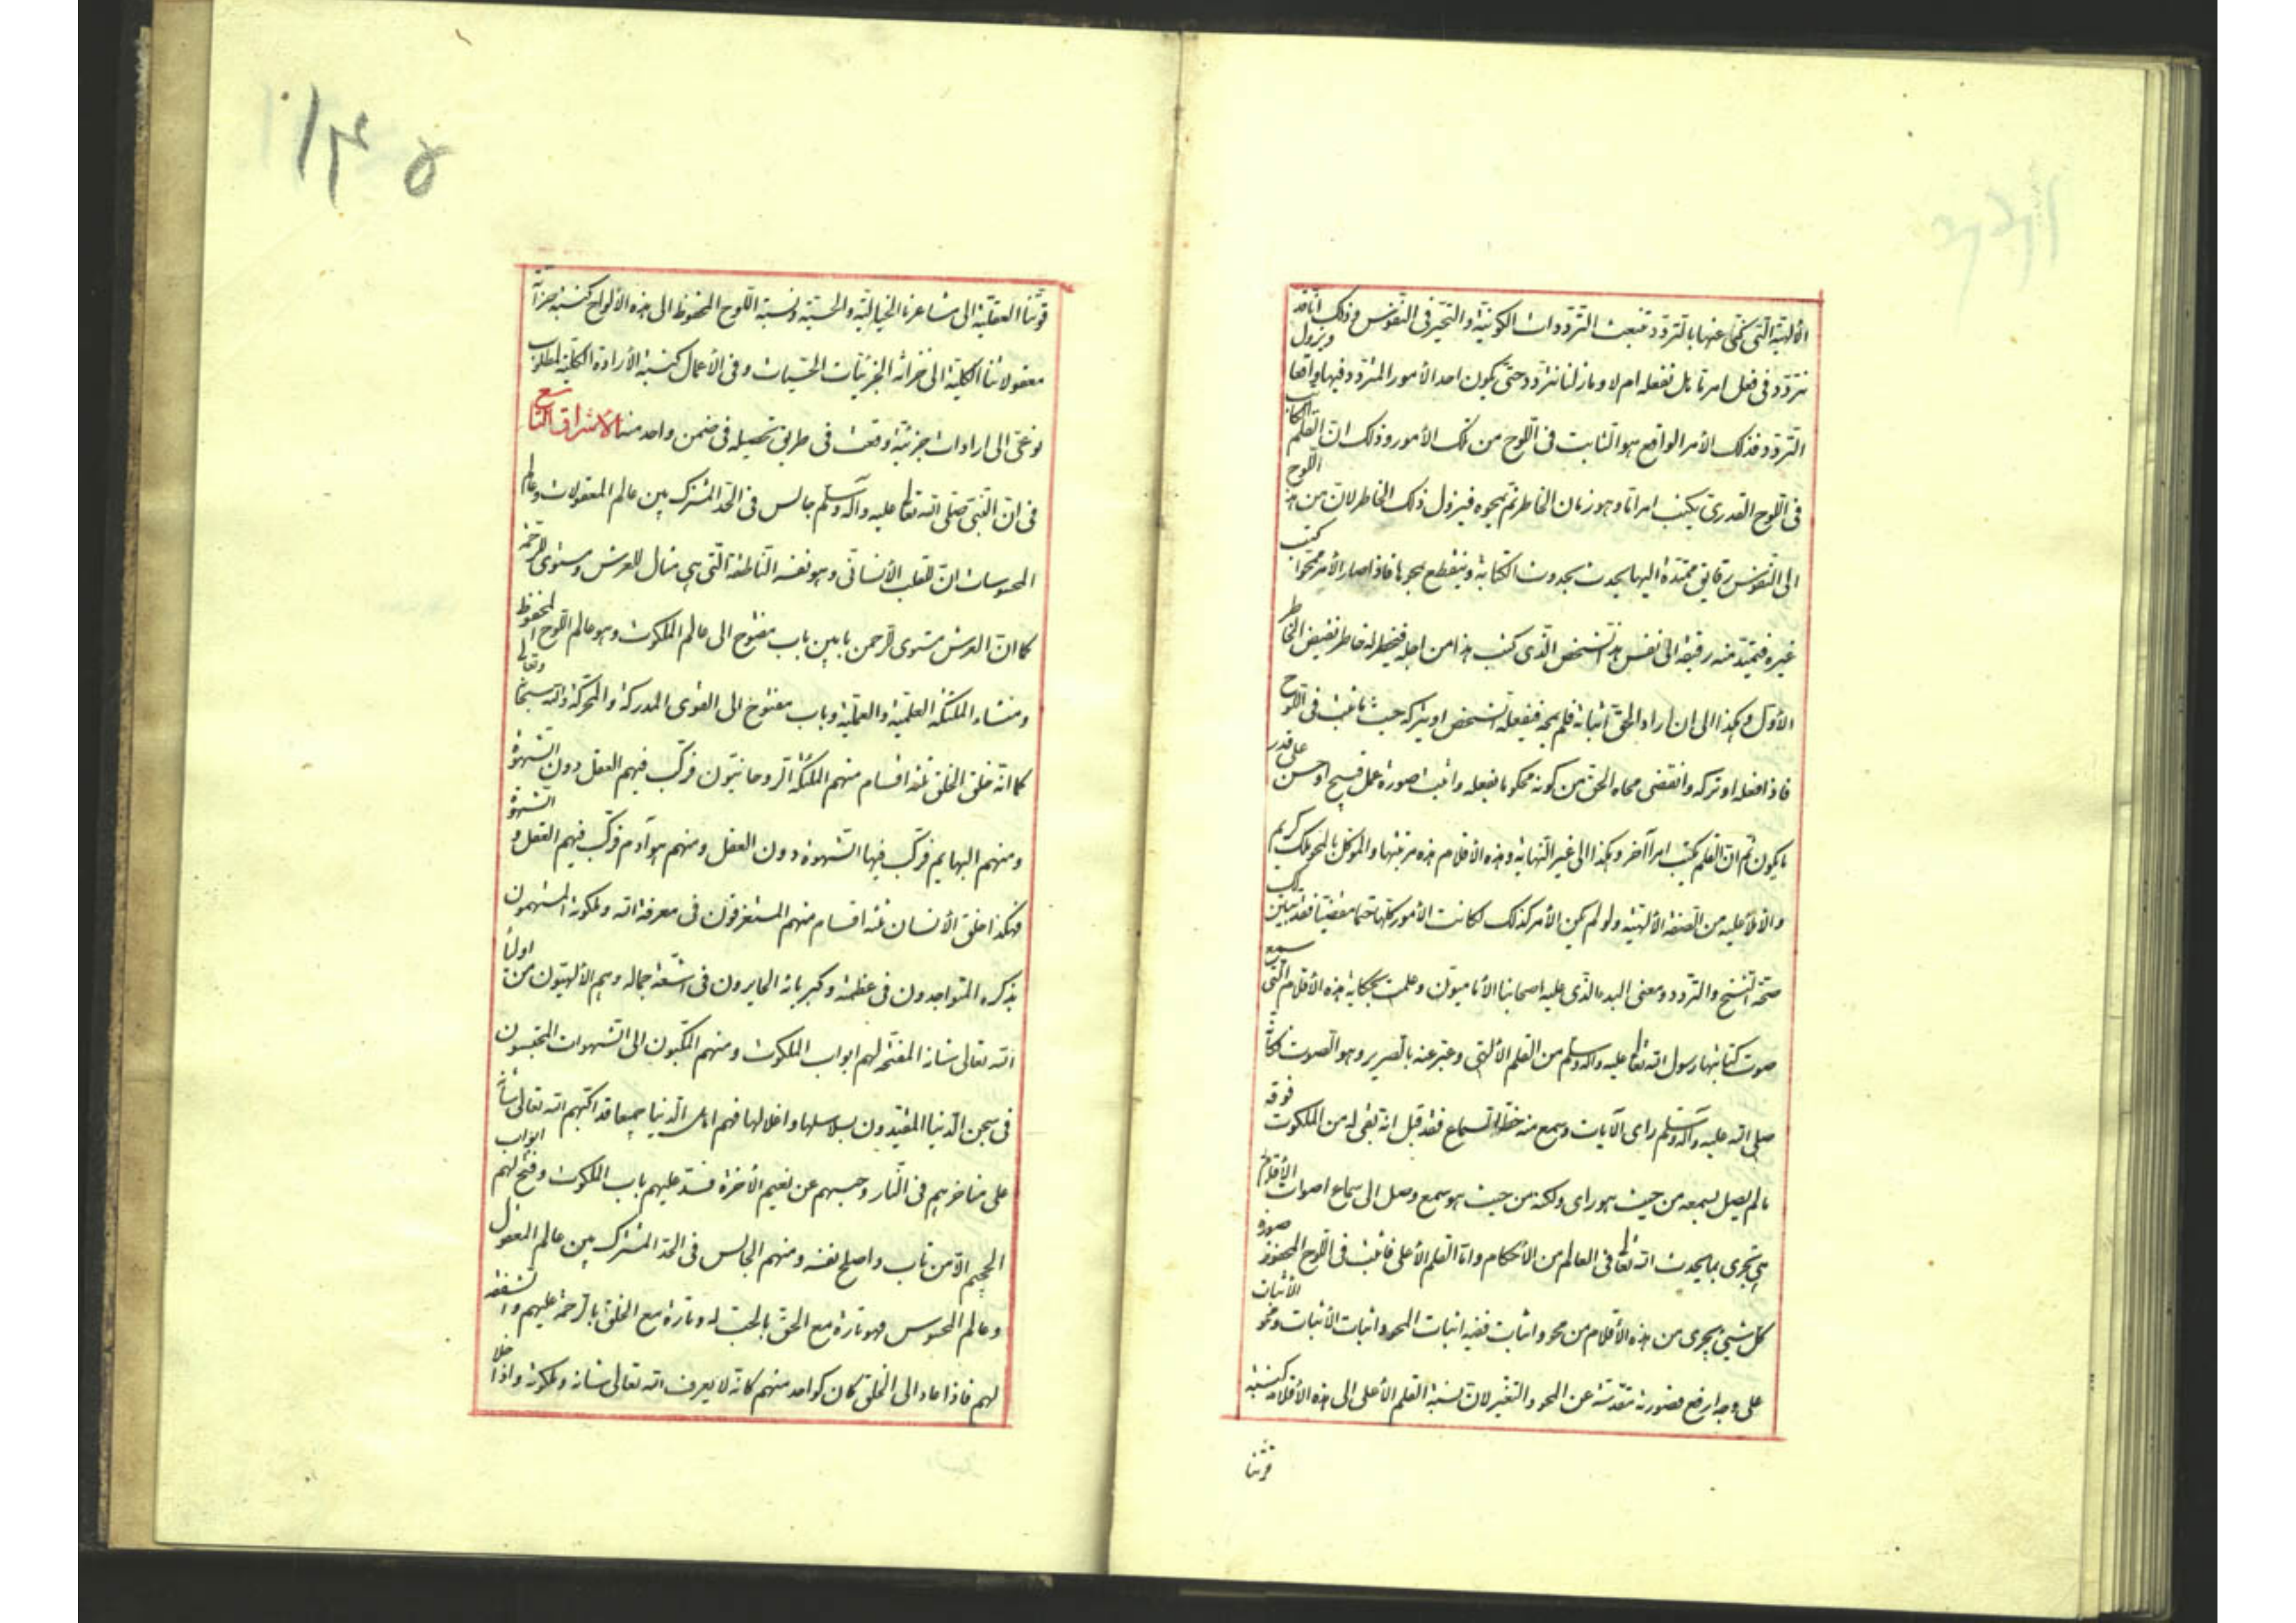 الألهية التى كنى عنها بالتردد تنبعث الترددات الكونية والتحير فى النفوس وذلك انا قد
نتردد فى فعل امر ما هل نفعله ام لا وما زلنا نتردد حتى يكون احد الأمور المتردد فيها واقعا ويزول
التردد فذلك الأمر الواقع هو الثابت فى اللوح من تلك الأمور وذلك ان القلم الكاتب
فى اللوح القدرى يكتب امرا ما وهو زمان الخاطر ثم يمحوه فيزول ذلك الخاطر لان من هذا اللوح
الى النفوس رقايق ممتدة اليها يحدث بحدوث الكتابة وينقطع بمحوها فاذا صار الأمر ممحوا كتب
غيره فيمتد منه رقيقة الى نفس هذا الشخص الذى كتب هذا من اجله فيخطر له خاطر نقيض الخاطر
الأول وهكذا الى ان اراد الحق اثباته فلم يمحه فيفعله الشخص او يتركه حيث ما ثبت فى اللوح
فاذا فعله او تركه وانقضى محاه الحق من كونه محكوما بفعله واثبت صورة عمل قبيح او حسن على قدر
ما يكون ثم ان القلم يكتب امرا آخر وهكذا الى غير النهاية وهذه الأقلام هذه مرتبتها والموكل بالمحو ملك كريم
والأملأ عليه من الصفة الألهية ولو لم يكن الأمر كذلك لكانت الأمور كلها حتما مقضيا فقد تبين لك
صحة النسخ والتردد ومعنى البدء الذى عليه اصحابنا الأماميون وعلمت بحكاية هذه الأقلام التى سمع
صوت كتابتها رسول الله تعالى عليه وآله وسلم من القلم الألهى وعبر عنه بالصرير وهو الصوت فكانه
صلى الله عليه وآله وسلم راى الآيات وسمع منه حظ السماع فقد قيل انه بقى له من الملكوت فوقه
ما لم يصل بسمعه من حيث هو راى ولكنه من حيث هو سمع وصل الى سماع اصوات الأقلام
هى تجرى بما يحدث الله تعالى فى العالم من الأحكام واما القلم الأعلى فاثبت فى اللوح المحفوظ صورة
كل شيئ يجرى من هذه الأقلام من محو واثبات ففيه اثبات المحو واثبات الأثبات ومحو الأثبات
على وجه ارفع فصورته مقدسة عن المحو والتغير لان نسبة القلم الأعلى الى هذه الأقلام كنسبة
قوتنا
۱۴۵
قوتنا العقلية الى مشاعرنا الخيالية والحسية ونسبة اللوح المحفوظ الى هذه الألواح كنسبة خزانة
معقولاتنا الكلية الى خزانة الجزئيات الحسيات وفى الأعمال كنسبة الأرادة الكلية لمطلوب
نوعى الى ارادات جزئية وقعت فى طريق تحصيله فى ضمن واحد منه الاشراق التاسع
فى ان النبى صلى الله تعالى عليه وآله وسلم جالس فى الحد المشترك بين عالم المعقولات وعالم
المحسوسات ان للقلب الأنسانى وهو نفسه الناطقة التى هى مثال للعرش ومستوى للرحمة
كما ان العرش مستوى الرحمن بابين باب مفتوح الى عالم الملكوت وهو عالم اللوح المحفوظ
ومنشاء الملئكة العلمية والعملية وباب مفتوح الى القوى المدركة والمحركة والله سبحانه وتعالى
كما انه خلق الخلق ثلثة اقسام منهم الملئكة الروحانيون فركب فيهم العقل دون الشهوة
ومنهم البهايم فركب فيها الشهوة دون العقل ومنهم بنو آدم فركب فيهم العقل و الشهوة
فهكذا خلق الأنسان ثلثة اقسام منهم المستغرقون فى معرفة الله وملكوته المستهمون
بذكره المتواجدون فى عظمته وكبريائه الحايرون فى اشعة جماله وهم الألهيون من اولياء
الله تعالى شانه المفتحة لهم ابواب الملكوت ومنهم المكبون الى الشهوات المحتبسون
فى سجن الدنيا المقيدون بسلاسلها واغلالها فهم اهل الدنيا جميعا قد اكبهم الله تعالى شانه
على مناخرهم فى النار وحبسهم عن نعيم الأخرة فسد عليهم باب الملكوت وفتح لهم ابواب
الجحيم الا من تاب واصلح نفسه ومنهم الجالس فى الحد المشترك بين عالم المعقول
وعالم المحسوس فهو تارة مع الحق بالحب له وتارة مع الخلق بالرحمة عليهم والشفقة
لهم فاذا عاد الى الخلق كان كواحد منهم كانه لا يعرف الله تعالى شانه وملكوته واذا خلا